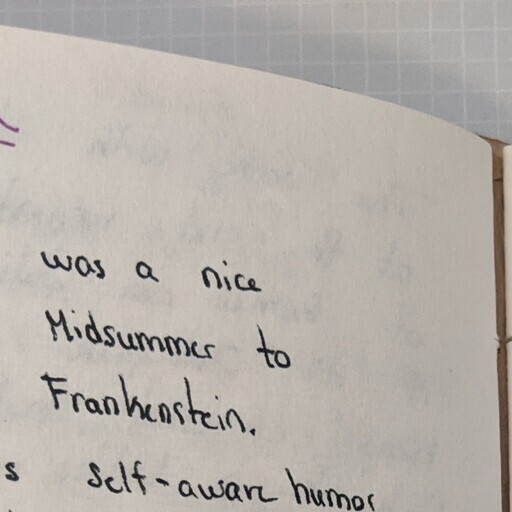 was a nice
Midsummer to
Frankenstein.
s self-aware humor